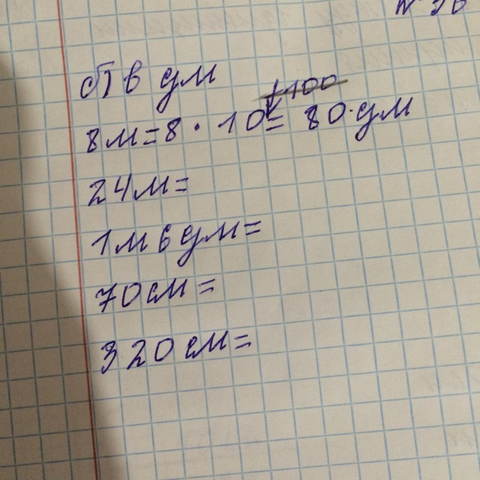 б) в дм
8м=8·10= 80 дм
24м=
1м 6 дм=
70см=
320см=